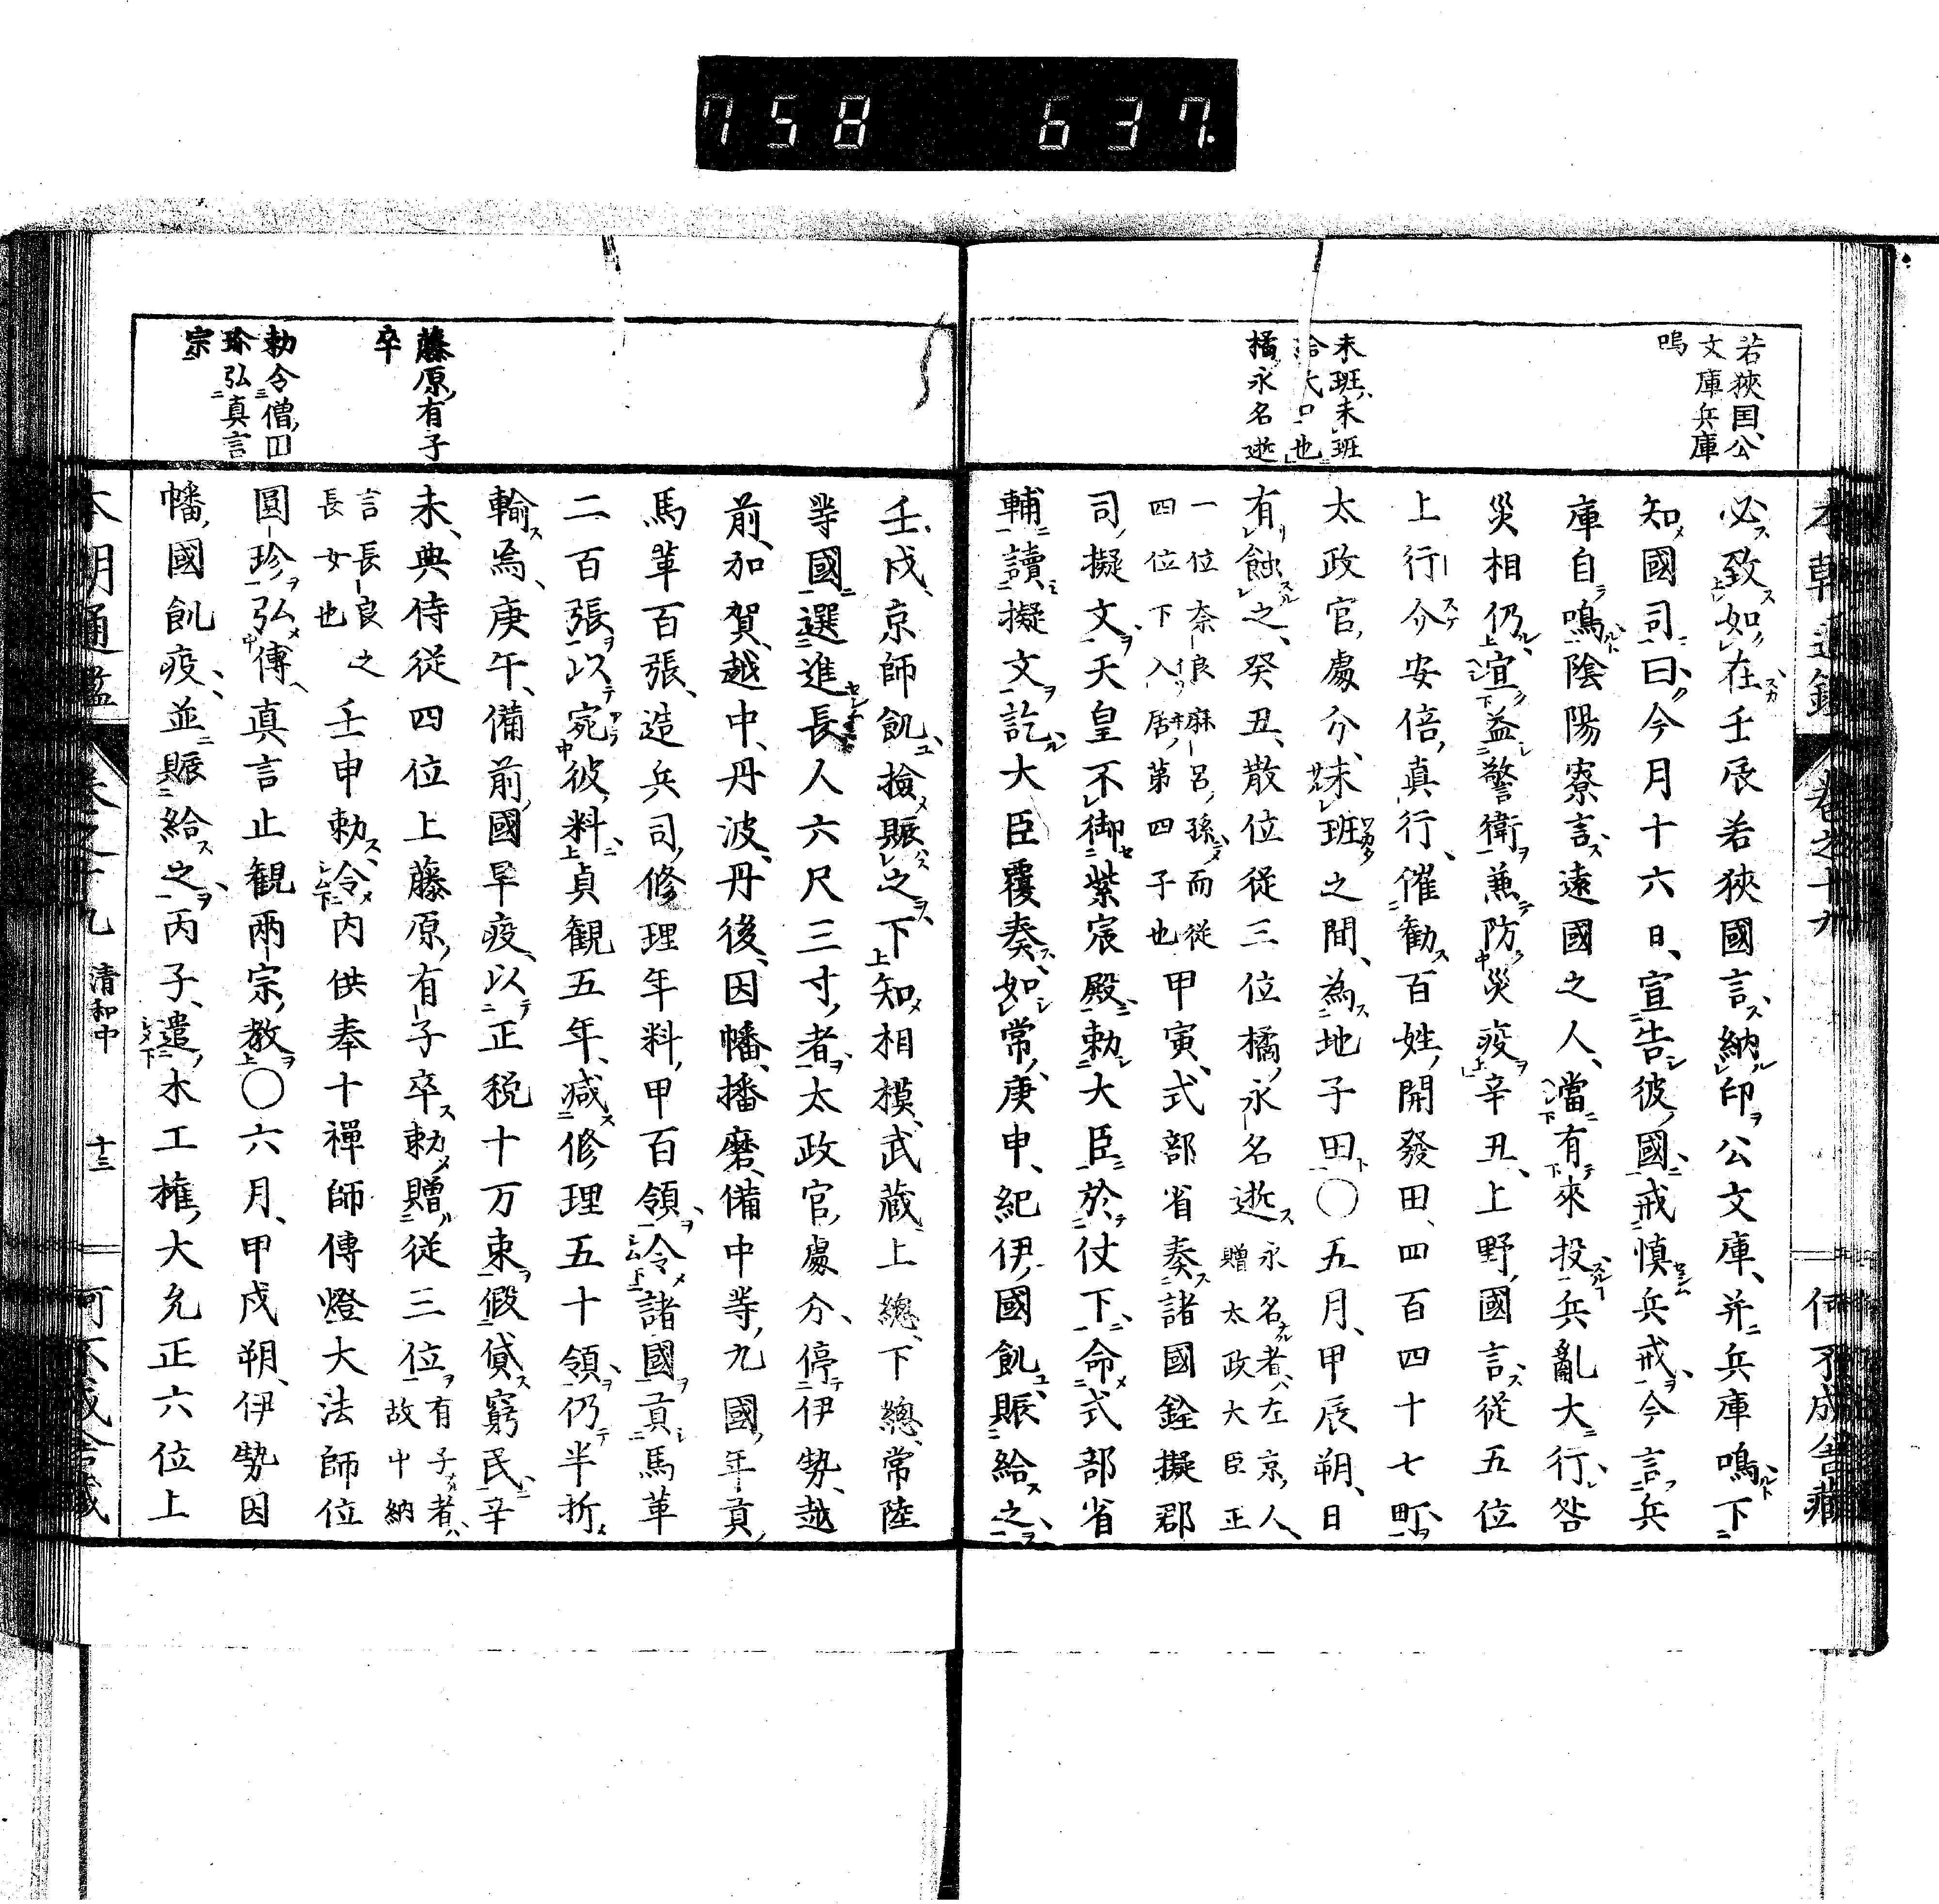 758 637.
若狹国公
文庫兵庫
鳴
未班、未班
給大口也
橘永名逝
本朝通鑑 卷之十九 佇不成舎藏
必致如在壬辰若狹國言、納印公文庫、并兵庫鳴下
知國司曰、今月十六日、宣告彼國、戒慎兵戒、今言兵
庫自鳴陰陽寮言遠國之人、當有來投兵亂大行咎
災相仍、宜益警衛兼防災疫辛丑、上野國言從五位
上行介安倍真行、催勸百姓、開發田、四百四十七町
太政官處分、未班之間、為地子田○五月、甲辰朔、日
有蝕之、癸丑、散位從三位橘永名逝永名者左京人、正
贈太政大臣正
一位奈良麻呂孫而從
四位下入居第四子也甲寅、式部省奏諸國銓擬郡
司擬文天皇不御紫宸殿勅大臣於仗下命式部省
輔讀擬文訖大臣覆奏如常、庚申、紀伊國飢賑給之
藤原有子
卒
勅令僧円
珎弘真言
宗
壬戌、京師飢、撿賑之、下知相模、武蔵、上總、下總、常陸
等國選進長人六尺三寸者、太政官處分、停伊勢、越
前、加賀、越中、丹波、丹後、因幡、播磨、備中等、九國年貢
馬革百張、造兵司修理年料甲百領、令諸國貢馬革
二百張以宛彼料貞観五年、減修理五十領、仍半折
輸焉、庚午、備前國旱疫、以正税十万束假貸窮民辛
未、典侍從四位上藤原有子卒勅贈從三位有子者
故中納
言長良之
長女也壬申勅令内供奉十禪師傳燈大法師位
圓珍弘傳真言止観兩宗教○六月、甲戌朔、伊勢因
幡國飢疫、並賑給之、丙子、遣木工權大允正六位上
本朝通鑑 卷之十九 清和中 十三 佇不成舎藏